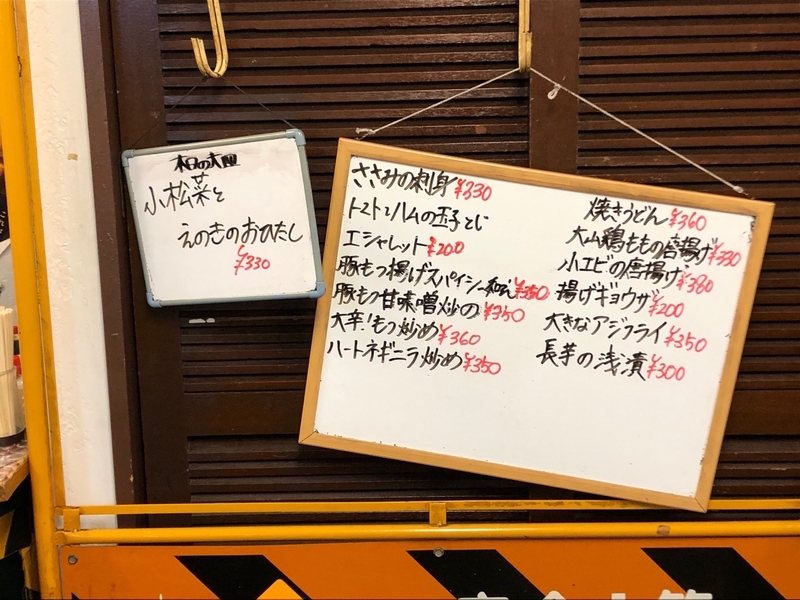 本日の大皿
小松菜と
えのきのおひたし
¥330
ささみの刺身¥330
トマトとハムの玉子とじ
エシャレット¥200
豚もつ揚げスパイシー和え¥350
豚もつ甘味噌炒め¥350
大辛!もつ炒め¥360
ハートネギニラ炒め¥350
焼きうどん¥360
大山鶏ももの唐揚げ¥330
小エビの唐揚げ¥380
揚げギョウザ¥200
大きなアジフライ¥350
長芋の浅漬¥300